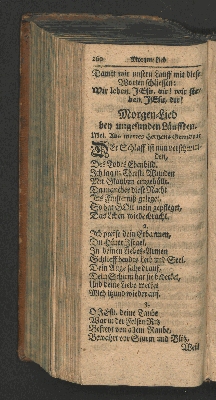 260 Morgen-Lied
Damit wir unsern Lauff mit diesen
Worten schliessen:
Wir leben, JEsu, dir! wir ster-
ben, JEsu, dir!
Morgen-Lied
bey ungesunden Läufften.
Mel. Aus meines Hertzens Grunde
Der Schlaff ist nun verschwun-
den,
Des Todes Ebenbild.
Ich lag in Christi Wunden
Mit Glauben
Da mancher diese Nacht
Ins Finsterniß geleget,
So hat GOtt mein gepfleget,
Das Leben wiederbracht.
2.
Ich preise dein Erbarmen,
Du Hüter Israel,
In deinen Liebes-Armen
Schlieff heudes Leib und Seel.
Dein Auge sahe drauf,
Dein Schirm hat sie bedecket,
Und deine Liebe wecket
Mich itzund wieder auf.
3.
O JEsu, deine Taube
War in der Felsen Ritz
Befreyt von allem Raube,
Bewahrt vor Sturm und Blitz.
Weil